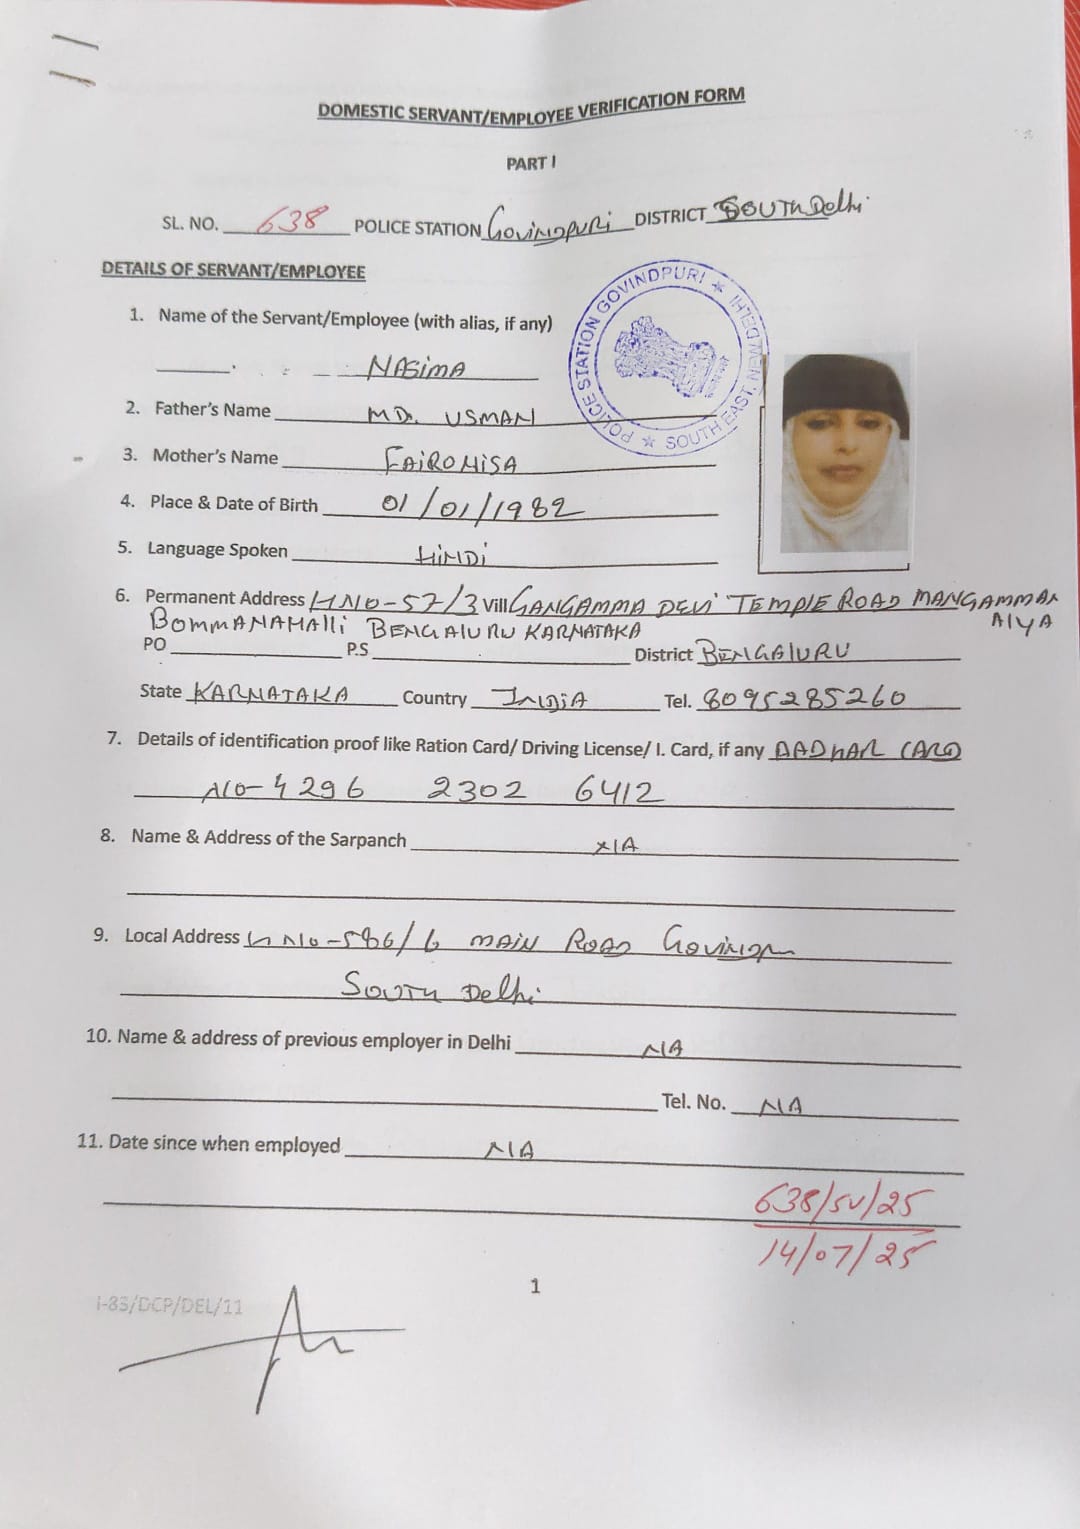 DOMESTIC SERVANT/EMPLOYEE VERIFICATION FORM
PART I
SL. NO. 638 POLICE STATION GOVINDPURI DISTRICT SOUTH Delhi
DETAILS OF SERVANT/EMPLOYEE
1. Name of the Servant/Employee (with alias, if any)
NASIMA
POLICE STATION GOVINDPURI ★ SOUTH EAST, NEW DELHI ★
2. Father's Name MD. USMAN
3. Mother's Name FAIRONISA
4. Place & Date of Birth 01/01/1982
5. Language Spoken HINDI
6. Permanent Address H NO-57/3 Vill GANGAMMA DEVI TEMPLE ROAD MANGAMMAN
AlYA
BOMMANAHAlli BENGAlURU KARNATAKA
PO P.S District BENGAlURU
State KARNATAKA Country INDIA Tel. 8095285260
7. Details of identification proof like Ration Card/ Driving License/ I. Card, if any AADHAR CARD
NO-4296 2302 6412
8. Name & Address of the Sarpanch NA
9. Local Address H NO-586/6 MAIN ROAD
SOUTH Delhi
10. Name & address of previous employer in Delhi NA
Tel. No. NA
11. Date since when employed NA
638/SV/25
14/07/25
1
I-83/DCP/DEL/11